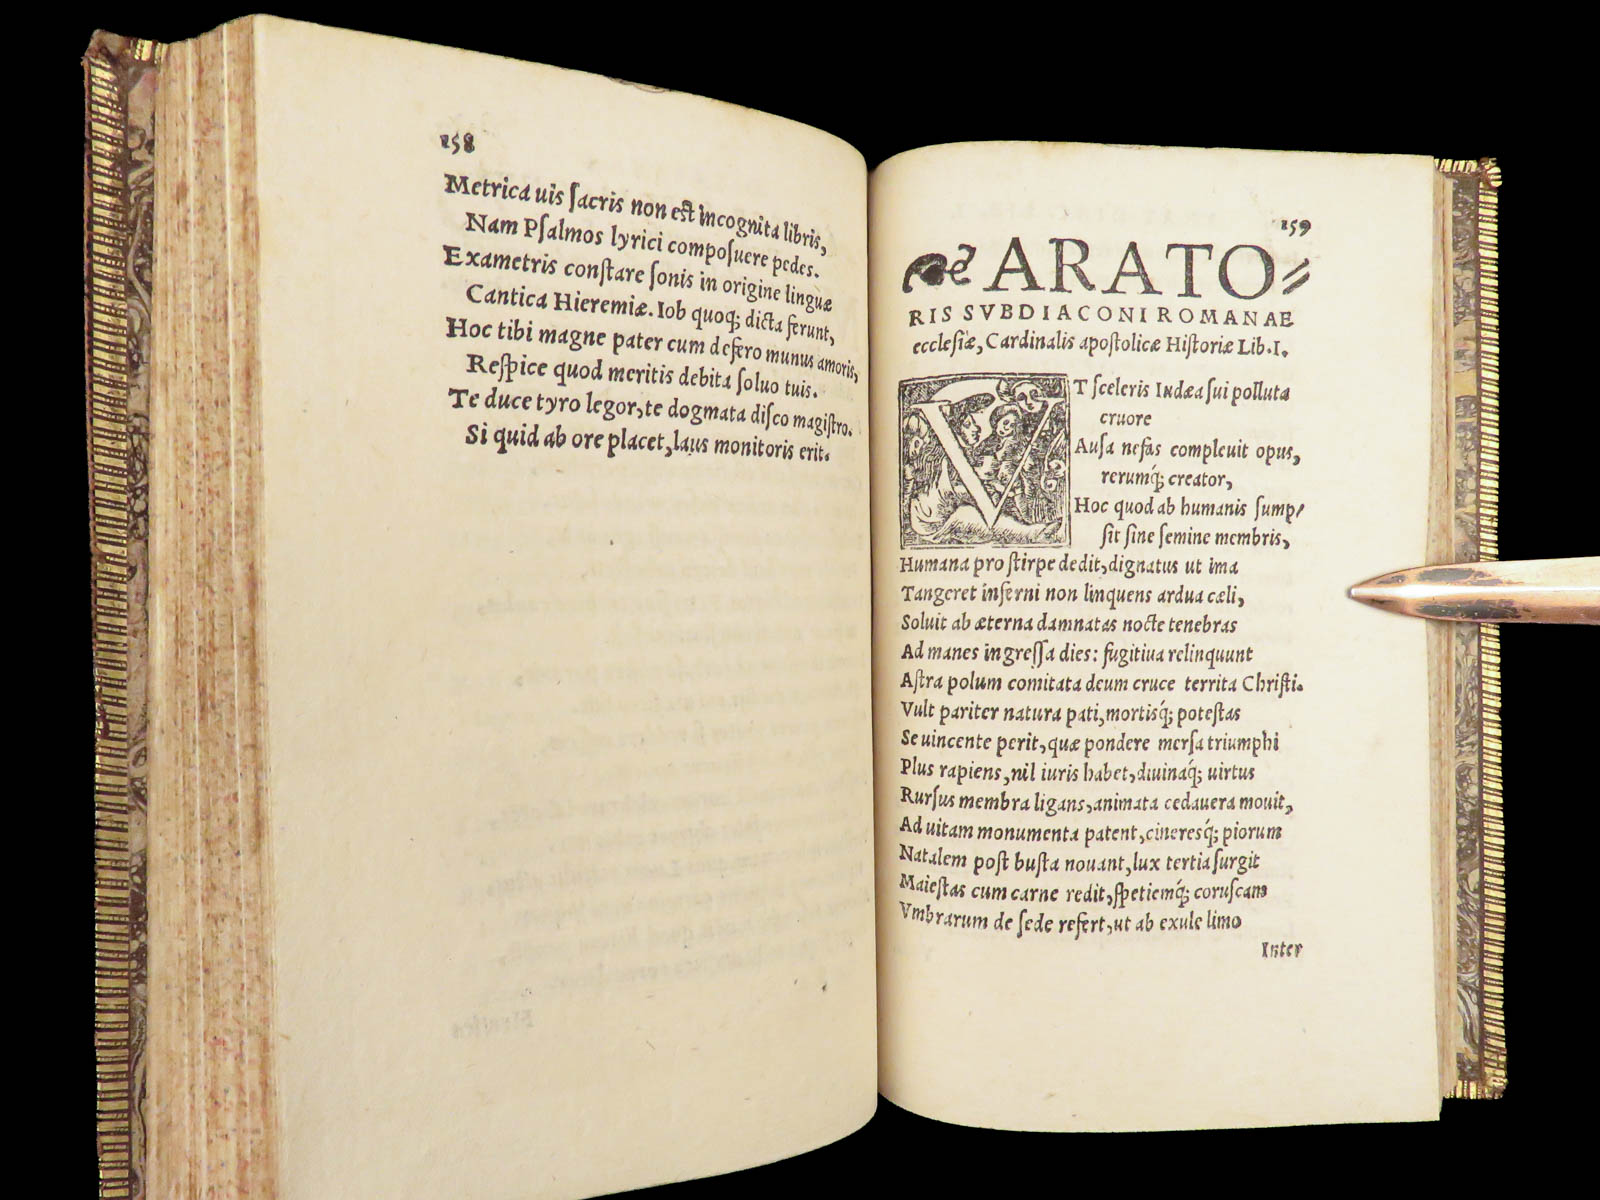 158
Metrica uis ſacris non est incognita libris,
Nam Pſalmos lyrici compoſuere pedes.
Exametris conſtare ſonis in origine linguæ
Cantica Hieremiæ. Iob quoq; dicta ferunt,
Hoc tibi magne pater cum defero munus amoris,
Reſpice quod meritis debita ſoluo tuis.
Te duce tyro legor, te dogmata diſco magiſtro.
Si quid ab ore placet, laus monitoris erit.
159
ARATO⸗
RIS SVBDIACONI ROMANAE
eccleſiæ, Cardinalis apoſtolicæ Hiſtoriæ Lib.I.
VT ſceleris Iudæa ſui polluta
cruore
Auſa nefas compleuit opus,
rerumq́; creator,
Hoc quod ab humanis ſump⸗
ſit ſine ſemine membris,
Humana pro ſtirpe dedit, dignatus ut ima
Tangeret inferni non linquens ardua cæli,
Soluit ab æterna damnatas nocte tenebras
Ad manes ingreſſa dies: fugitiua relinquunt
Aſtra polum comitata deum cruce territa Chriſti.
Vult pariter natura pati, mortisq́; poteſtas
Se uincente perit, quæ pondere merſa triumphi
Plus rapiens, nil iuris habet, diuinaq́; uirtus
Rurſus membra ligans, animata cedauera mouit,
Ad uitam monumenta patent, cineresq́; piorum
Natalem poſt buſta nouant, lux tertia ſurgit
Maieſtas cum carne redit, ſpetiemq́; coruſcam
Vmbrarum de ſede refert, ut ab exule limo
Inter